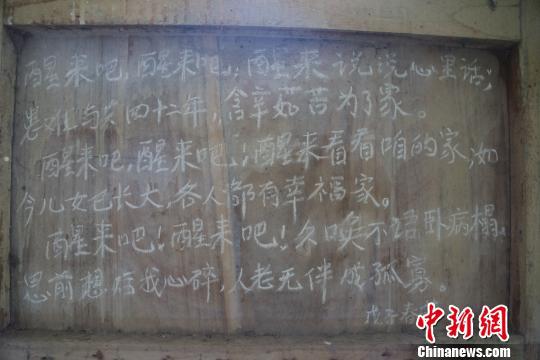 醒来吧,醒来吧!醒来说说心里话,
患难与共四十二年,含辛茹苦为了家。
醒来吧,醒来吧!醒来看看咱的家,如
今儿女已长大,各人都有幸福家。
醒来吧!醒来吧!久唤不语卧病榻,
思前想后我心碎,人老无伴成孤寡。
戊子春
中新网
Chinanews.com